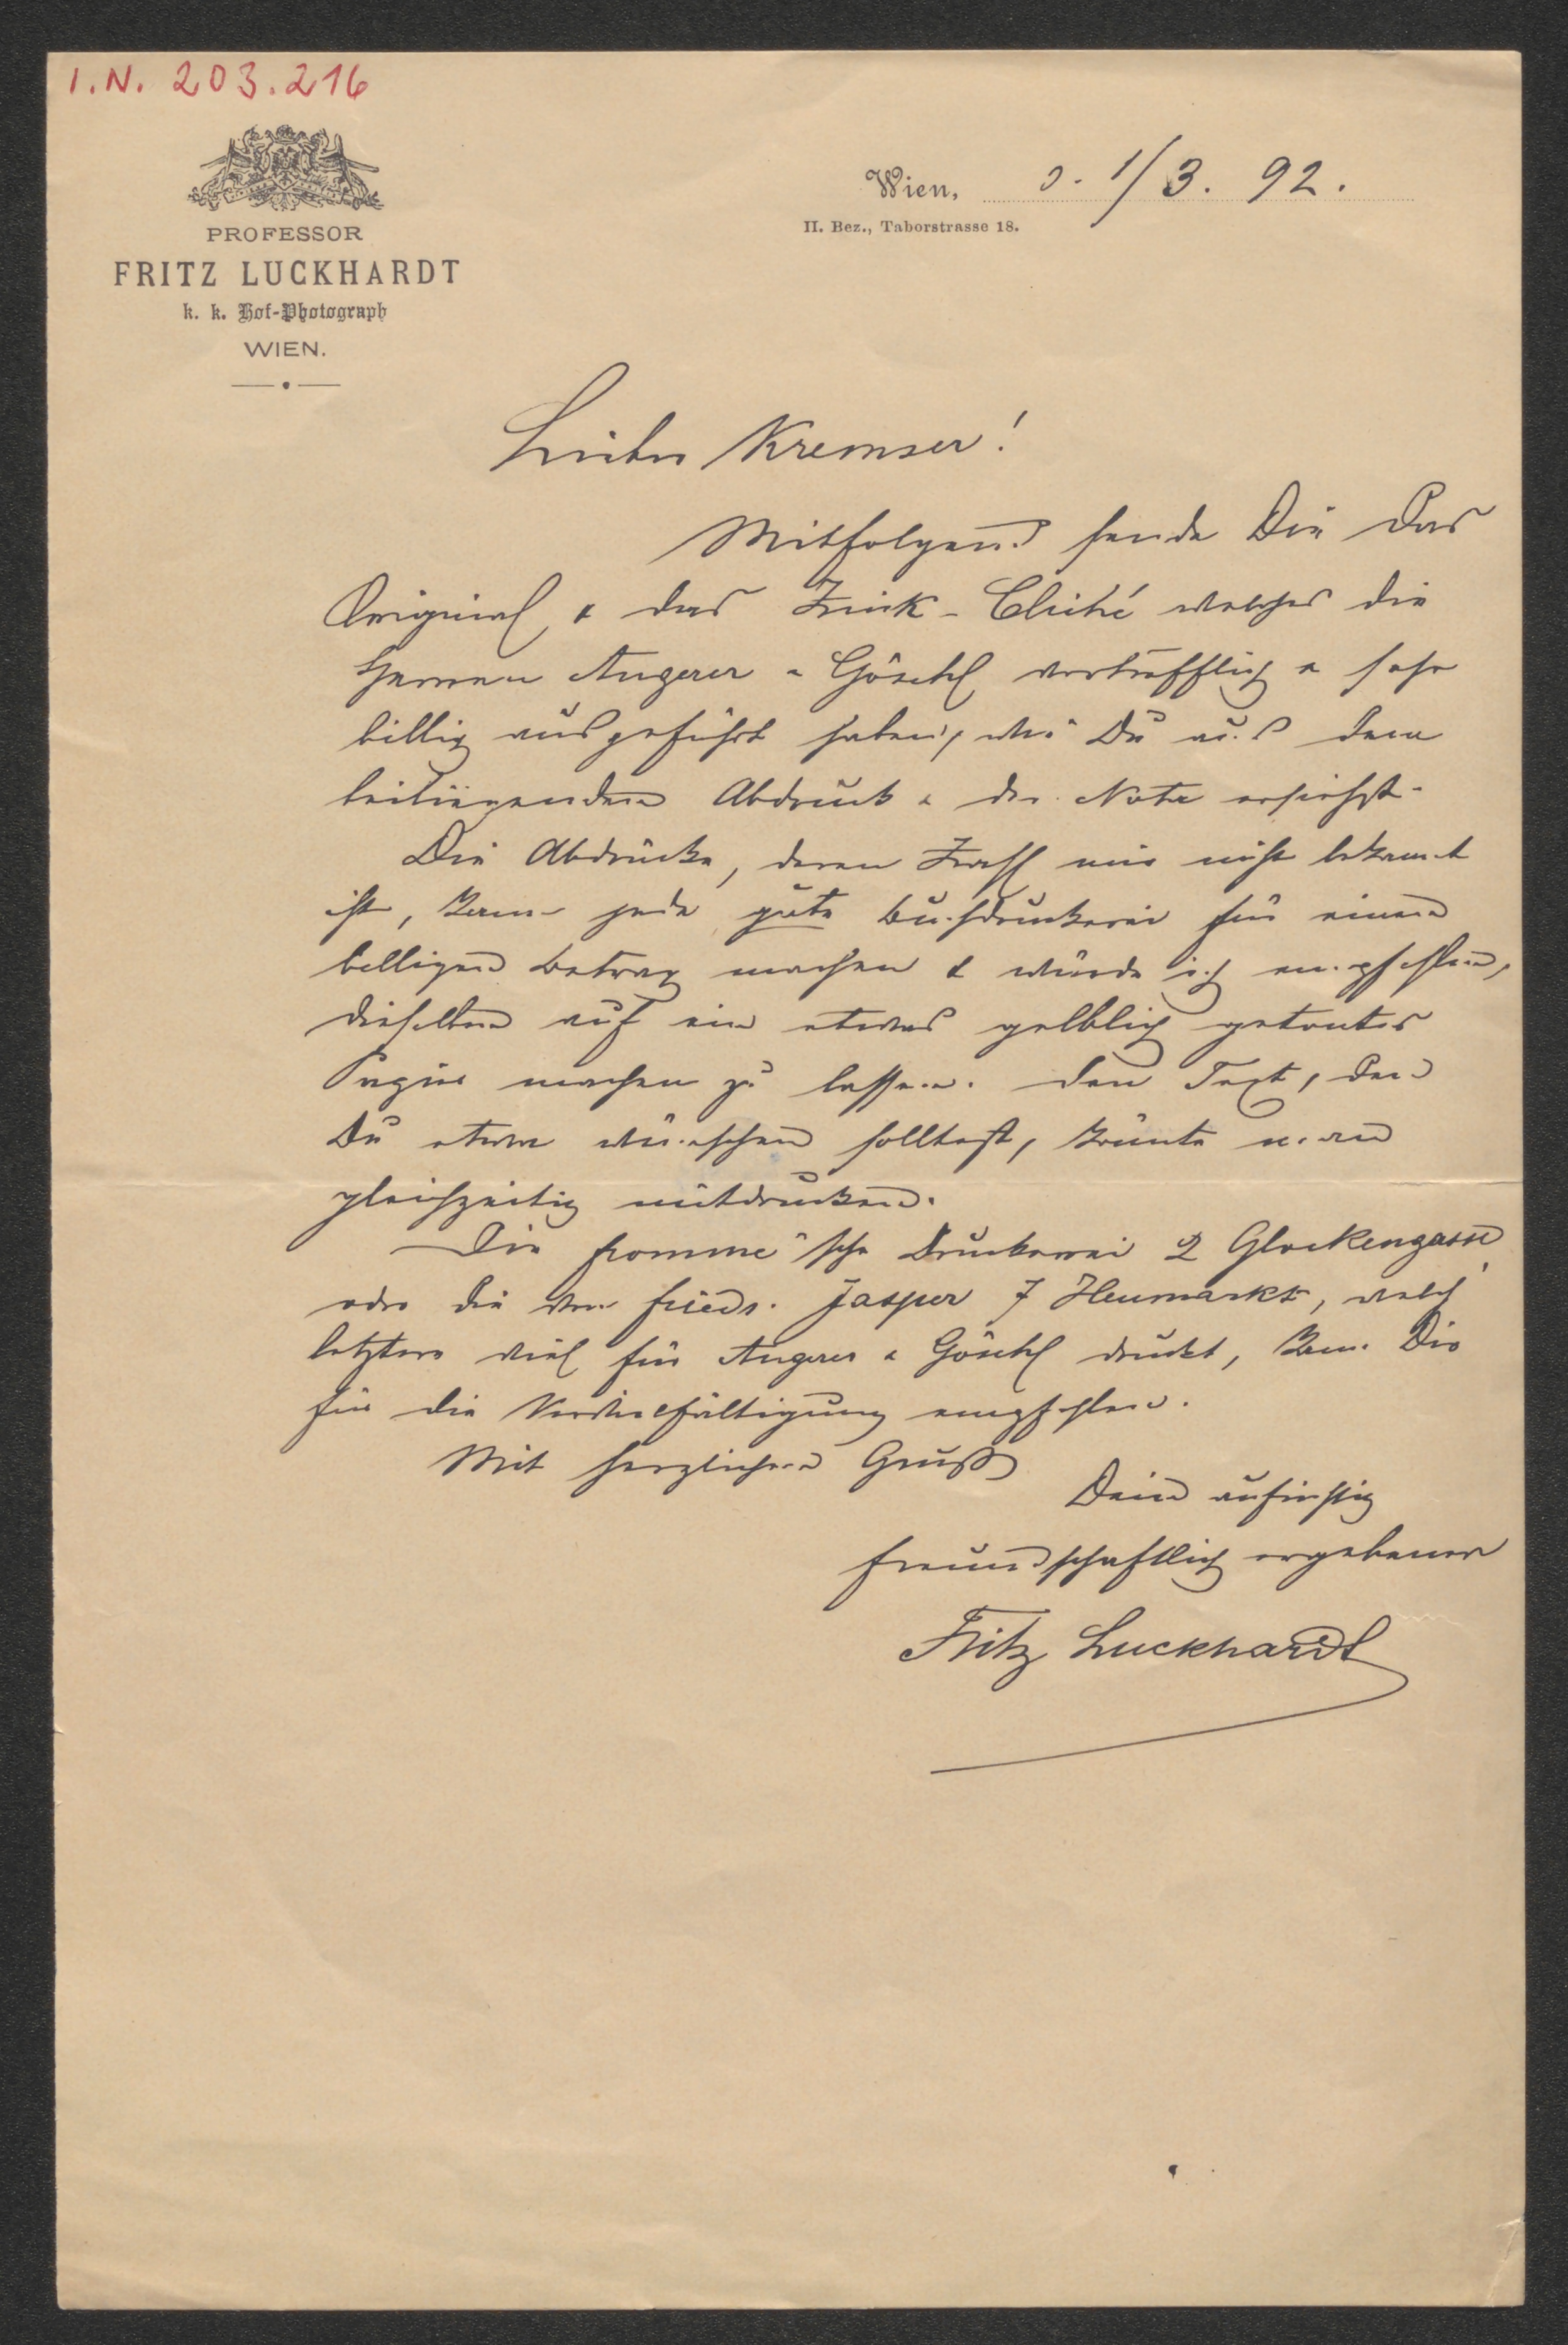 I.N. 203.216
PROFESSOR
FRITZ LUCKHARDT
k. k. Hof-Photograph
WIEN.
Wien, d. 1/3. 92.
II. Bez., Taborstrasse 18.
Lieber Kremser!
Mitfolgend sende Dir das
Original & das Zink-Cliché welches die
Herren Angerer & Göschl vortrefflich & sehr
billig ausgeführt haben, wie Du aus dem
beiliegenden Abdruck & der Nota ersiehst.
Die Abdrücke, deren Zahl mir nicht bekannt
ist, kann jede gute Buchdruckerei für einen
billigen Betrag machen & würde ich empfehlen,
dieselben auf ein etwas gelblich getontes
Papier machen zu lassen. Den Text, den
Du etwa wünschen solltest, könnte man
gleichzeitig mitdrucken.
Die Fromme'sche Druckerei 2 Glockengasse
oder die von Friedr. Jasper 7 Heumarkt, welch
letztere viel für Angerer & Göschl druckt, kann Dir
für die Vervielfältigung empfehlen.
Mit herzlichem Gruß
Dein aufrichtig
freundschaftlich ergebener
Fritz Luckhardt